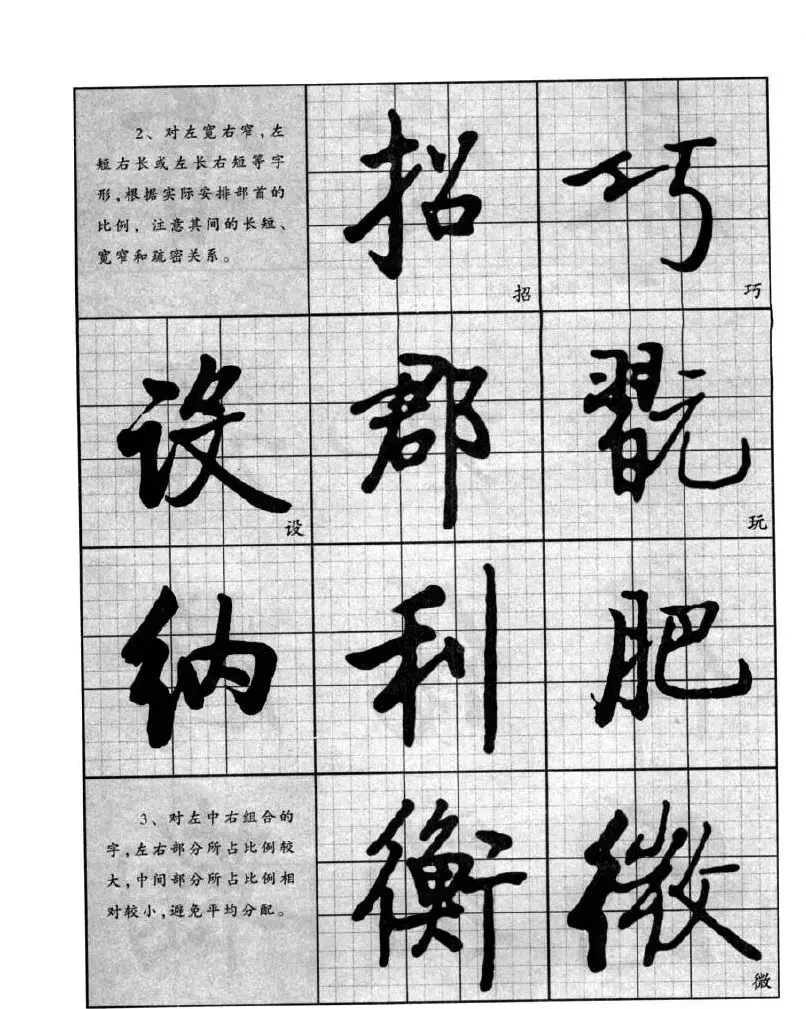 2、对左宽右窄,左
短右长或左长右短等字
形,根据实际安排部首的
比例，注意其间的长短、
宽窄和疏密关系。
招
招
巧
巧
设
设
郡
翫
玩
纳
利
肥
3、对左中右组合的
字,左右部分所占比例较
大,中间部分所占比例相
对较小,避免平均分配。
衡
微
微